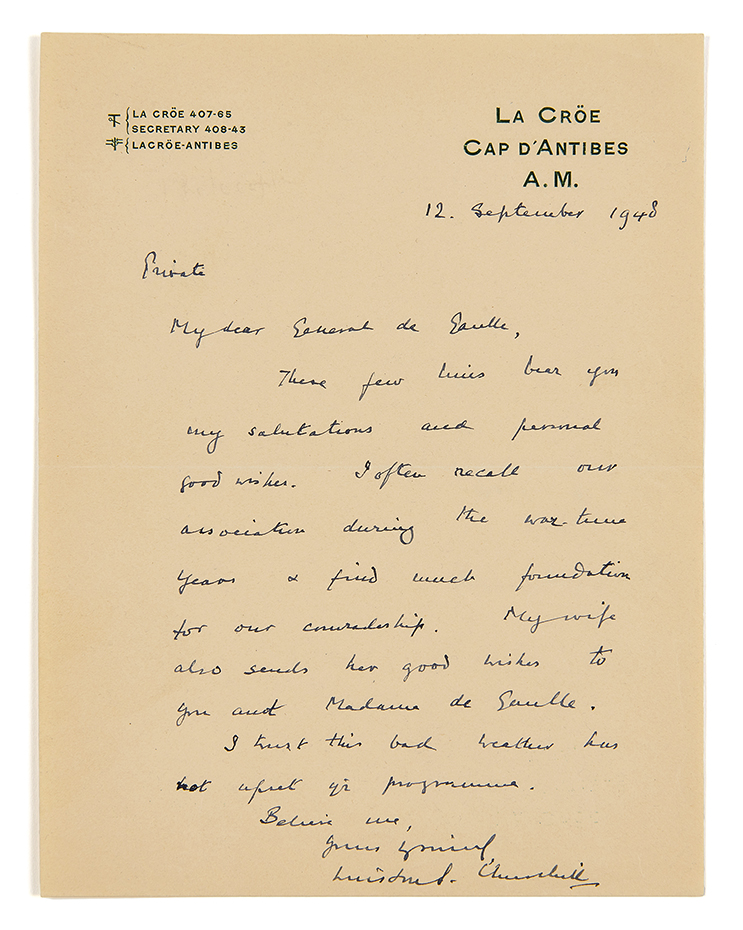 LA CRÖE 407-65
SECRETARY 408-43
LACRÖE-ANTIBES
LA CRÖE
CAP D'ANTIBES
A.M.
12. September 1948
Private
My dear General de Gaulle,
These few lines bear you
my salutations and personal
good wishes. I often recall our
association during the war-time
years & find much foundation
for our comradeship. My wife
also sends her good wishes to
you and Madame de Gaulle.
I trust this bad weather has
not upset yr programme.
Believe me,
Yours
Winston S. Churchill